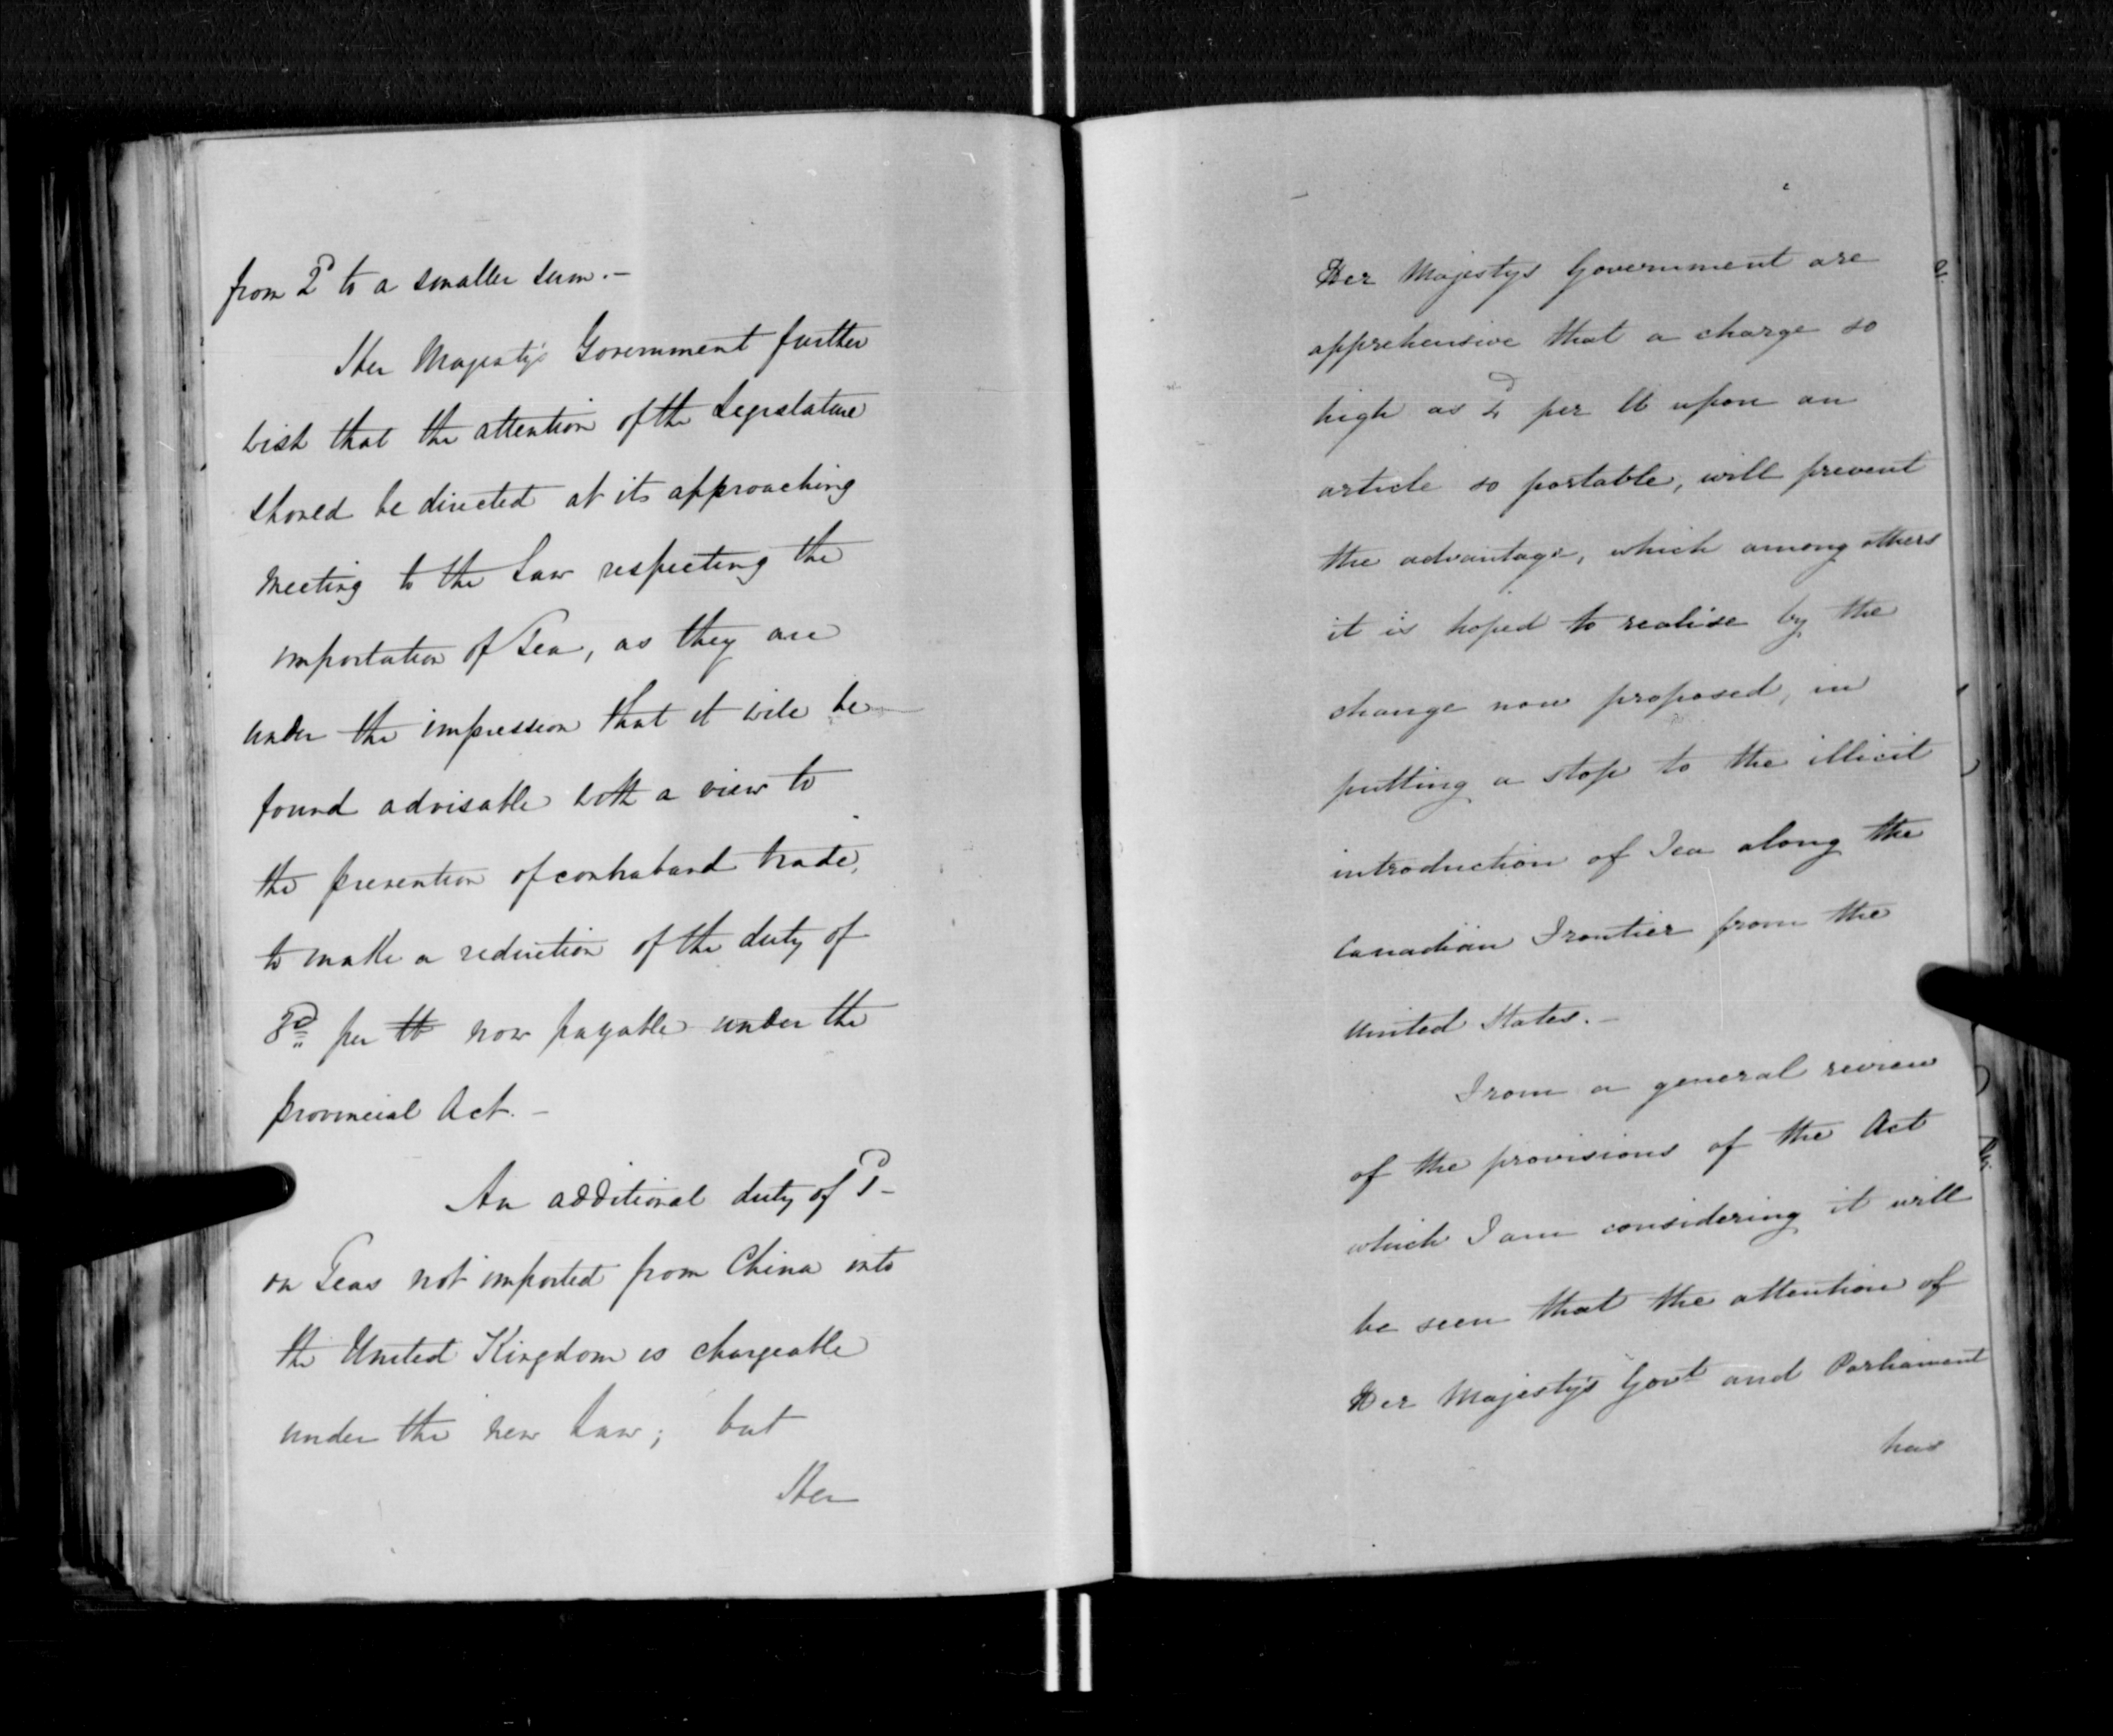 from 2d to a smaller sum. –
Her Majesty's Government further
wish that the attention of the Legislature
should be directed at its approaching
Meeting to the Law respecting the
importation of Tea, as they are
under the impression that it will be
found advisable with a view to
the prevention of contraband trade,
to make a reduction of the duty of
3d per lb now payable under the
provincial Act. –
An additional duty of 1d –
on Teas not imported from China into
the United Kingdom is chargeable
under the new Law; but
Her
Her Majestys Government are
apprehensive that a charge so
high as per lb upon an
article so portable, will prevent
the advantage, which among others
it is hoped to realise by the
change now proposed, in
putting a stop to the illicit
introduction of Tea along the
Canadian Frontier from the
United States. –
From a general review
of the provisions of the Act
which I am considering it will
be seen that the attention of
Her Majesty's Govt and Parliament
has